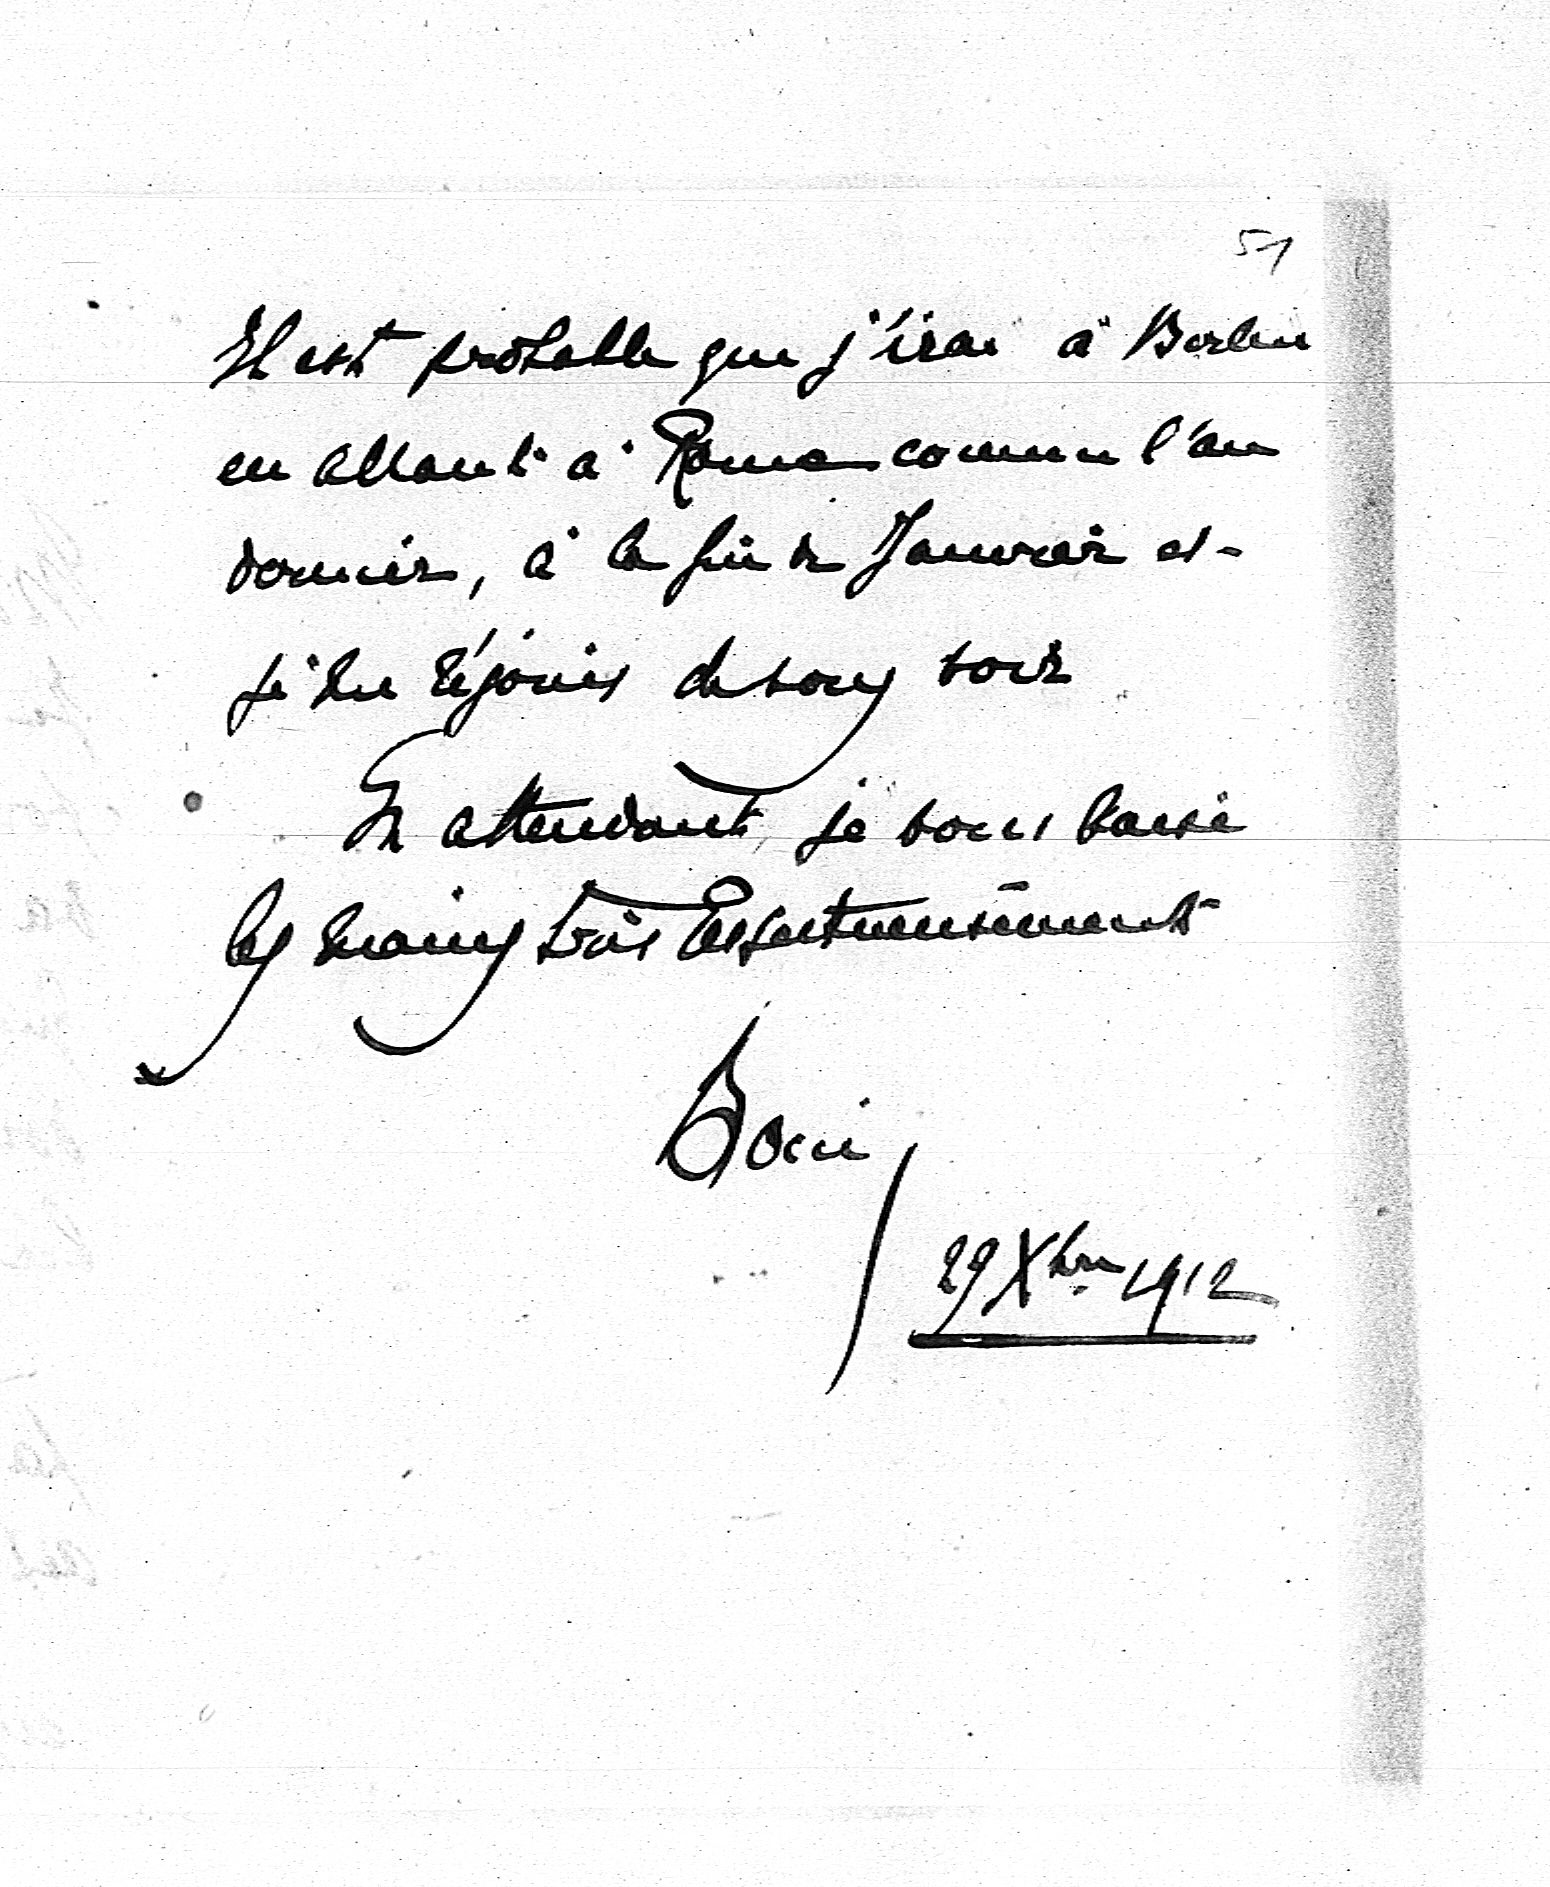 51
Il est probable que j'irai à Berlin
en allant à Rome comme l'an
dernier, à la fin de Janvier et
je me réjouis de vous voir
En attendant je vous baise
les mains très affectueusement
29 Xbre 1912